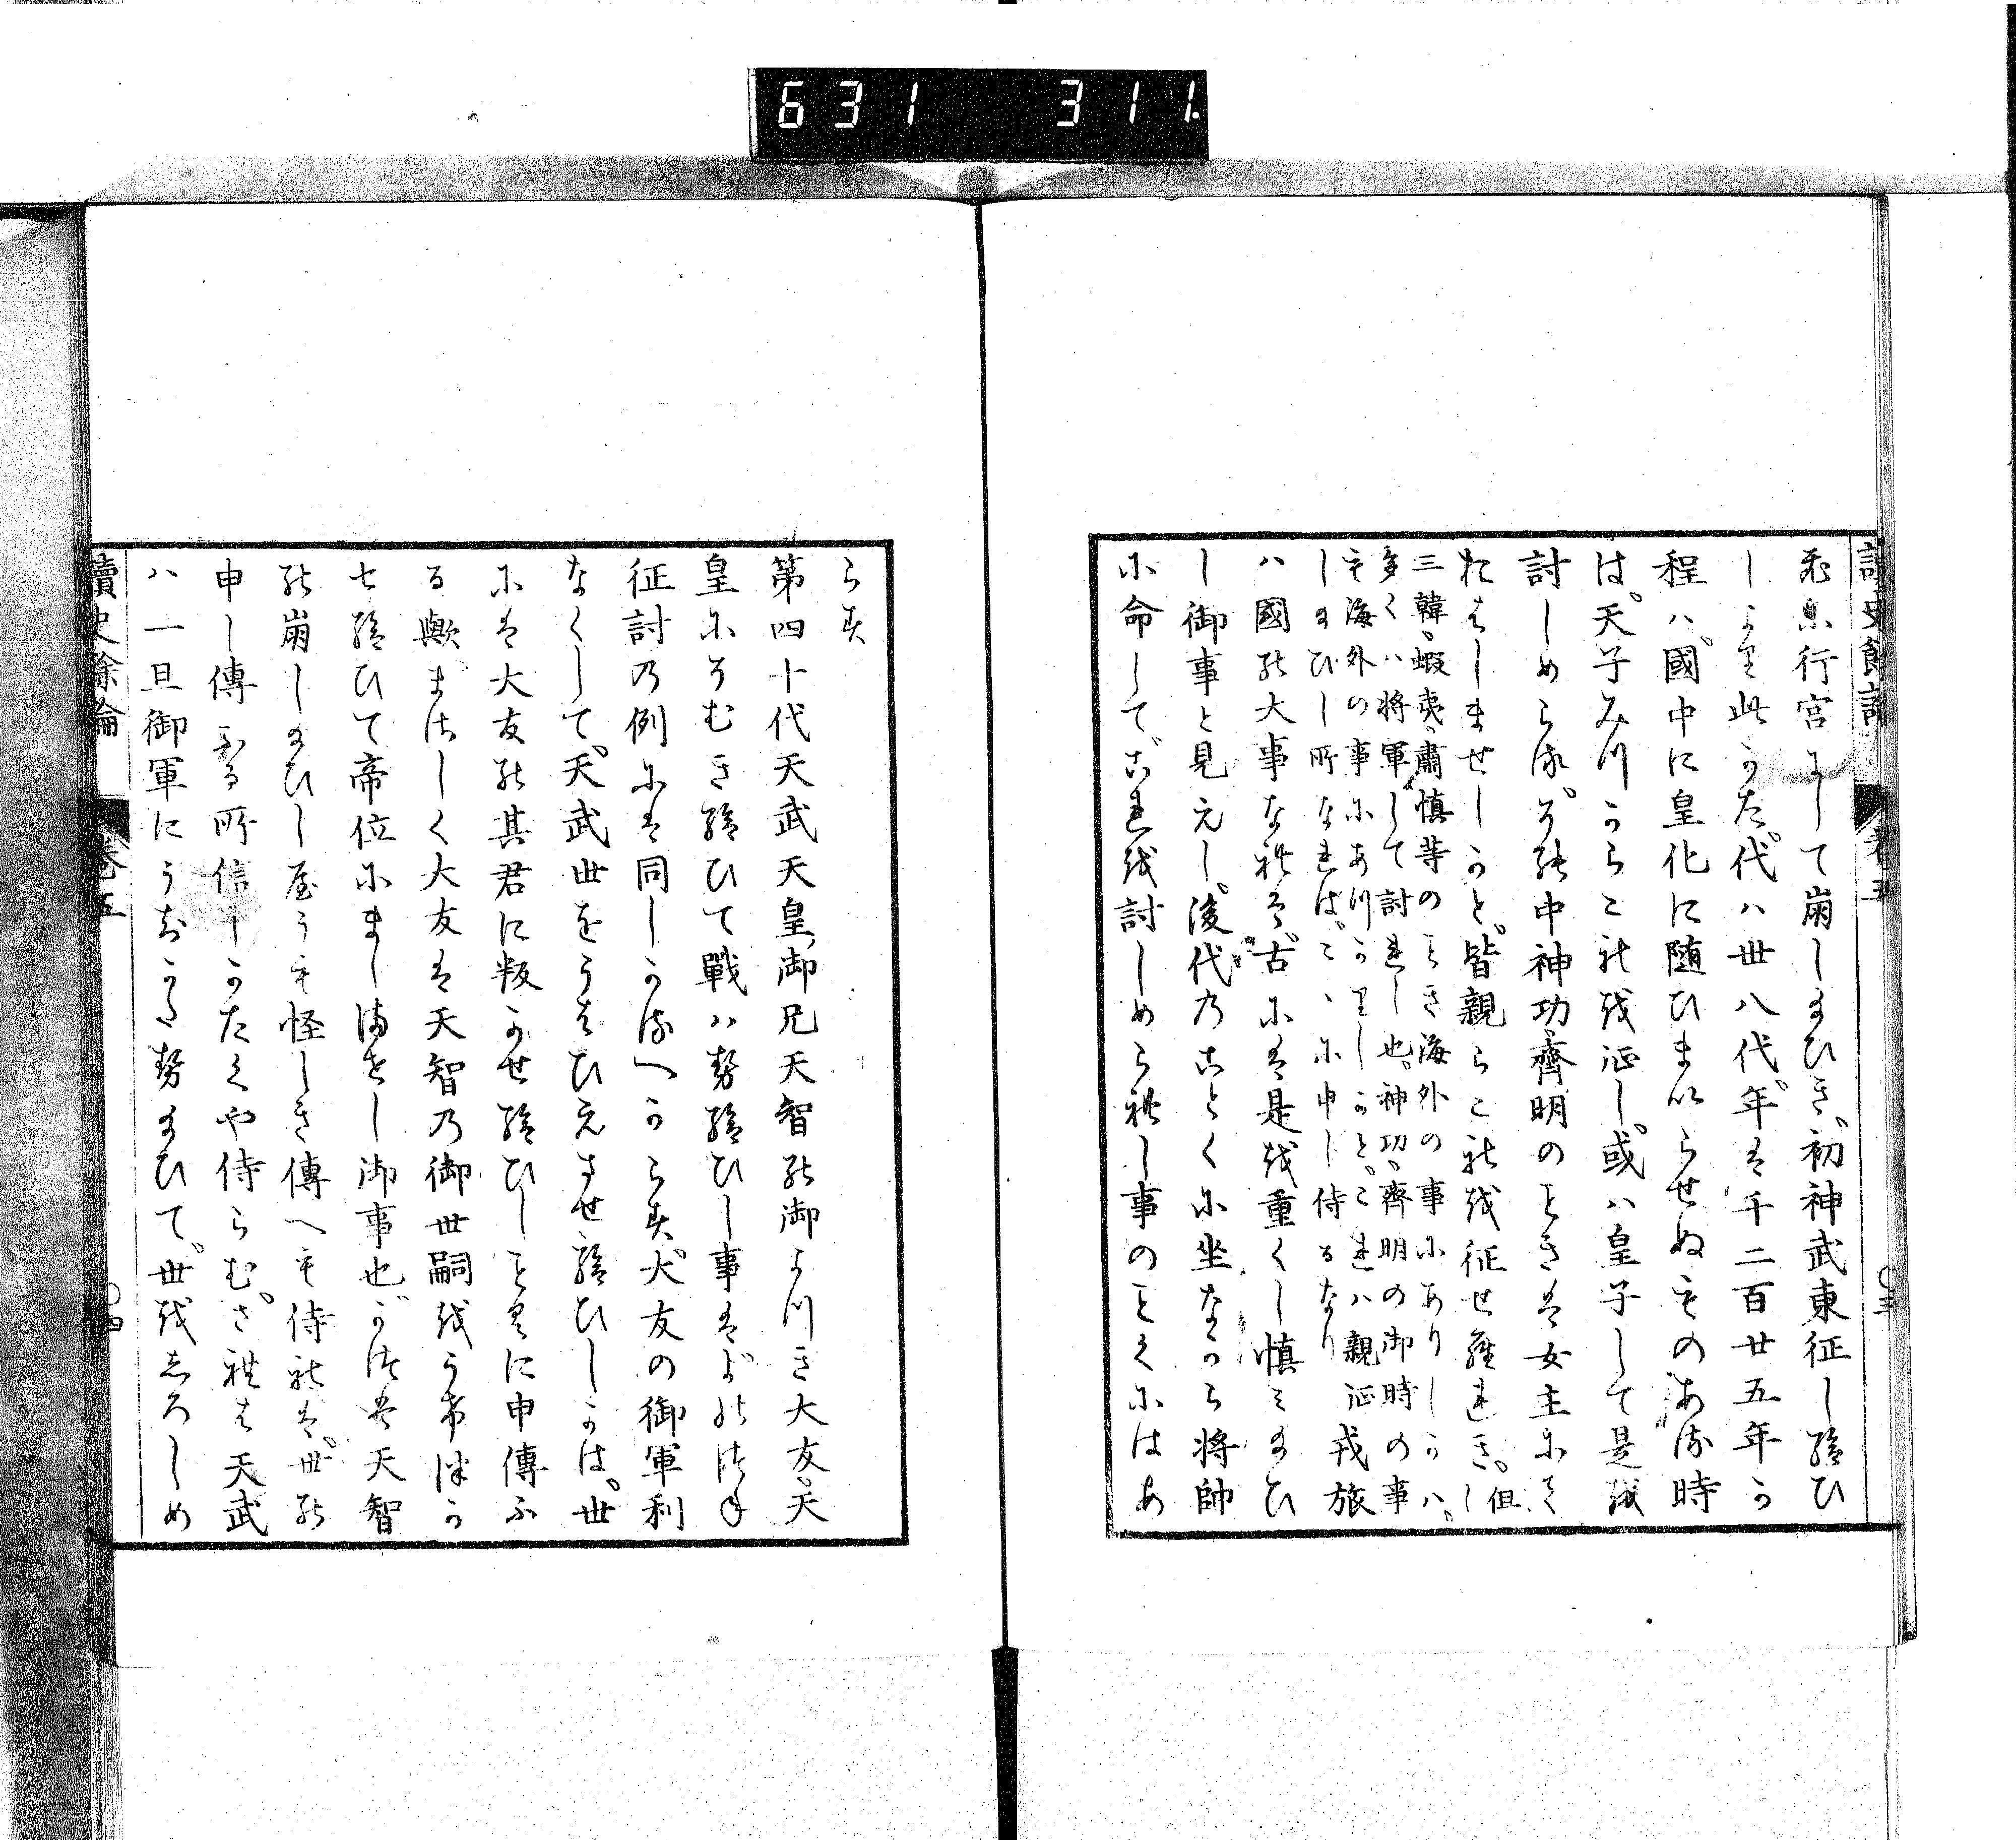 631 311
讀史餘論 卷五 〇三
飛鳥行宮にして崩し給ひき、初神武東征し給ひ
しより此かた、代ハ卅八代、年は千二百廿五年か
程ハ、國中に皇化に随ひまいらせぬものある時
は、天子みつからこれを征し、或ハ皇子して是を
討しめらる、その中神功、齊明のときは女主にて
おはしませしかと、皆親らこれを征せられき、但し
三韓、蝦夷、肅愼等のとき海外の事にありしかハ、
多くハ将軍して討れし也、神功、齊明の御時の事
も海外の事にあつかりしかと、これハ親征
しまひし所なれば、こゝに申し侍るなり
戎旅
ハ國の大事なれは、古には是を重くし慎ミ給ひ
し御事と見えし、後代のことくに坐なから将帥
に命して、これを討しめられし事のことくにはあ
らす
第四十代天武天皇、御兄天智の御よつき大友、天
皇にそむき給ひて戰ハ勢給ひし事は、よのつね
征討の例には同しかるへからす、大友の御軍利
なくして、天武世をうはひえさせ給ひしかは、世
には大友の其君に叛かせ給ひしことくに申傳ふ
る歟、まさしく大友は天智の御世嗣をうけつか
せ給ひて帝位にまし満せし御事也、かつは天智
の崩し給ひし屋うも怪しき傳へも侍れは、世の
申し傳ふる所信しかたくや侍らむ、されは天武
ハ一旦御軍にうちかた勢給ひて、世をしろしめ
讀史餘論 卷五 〇四